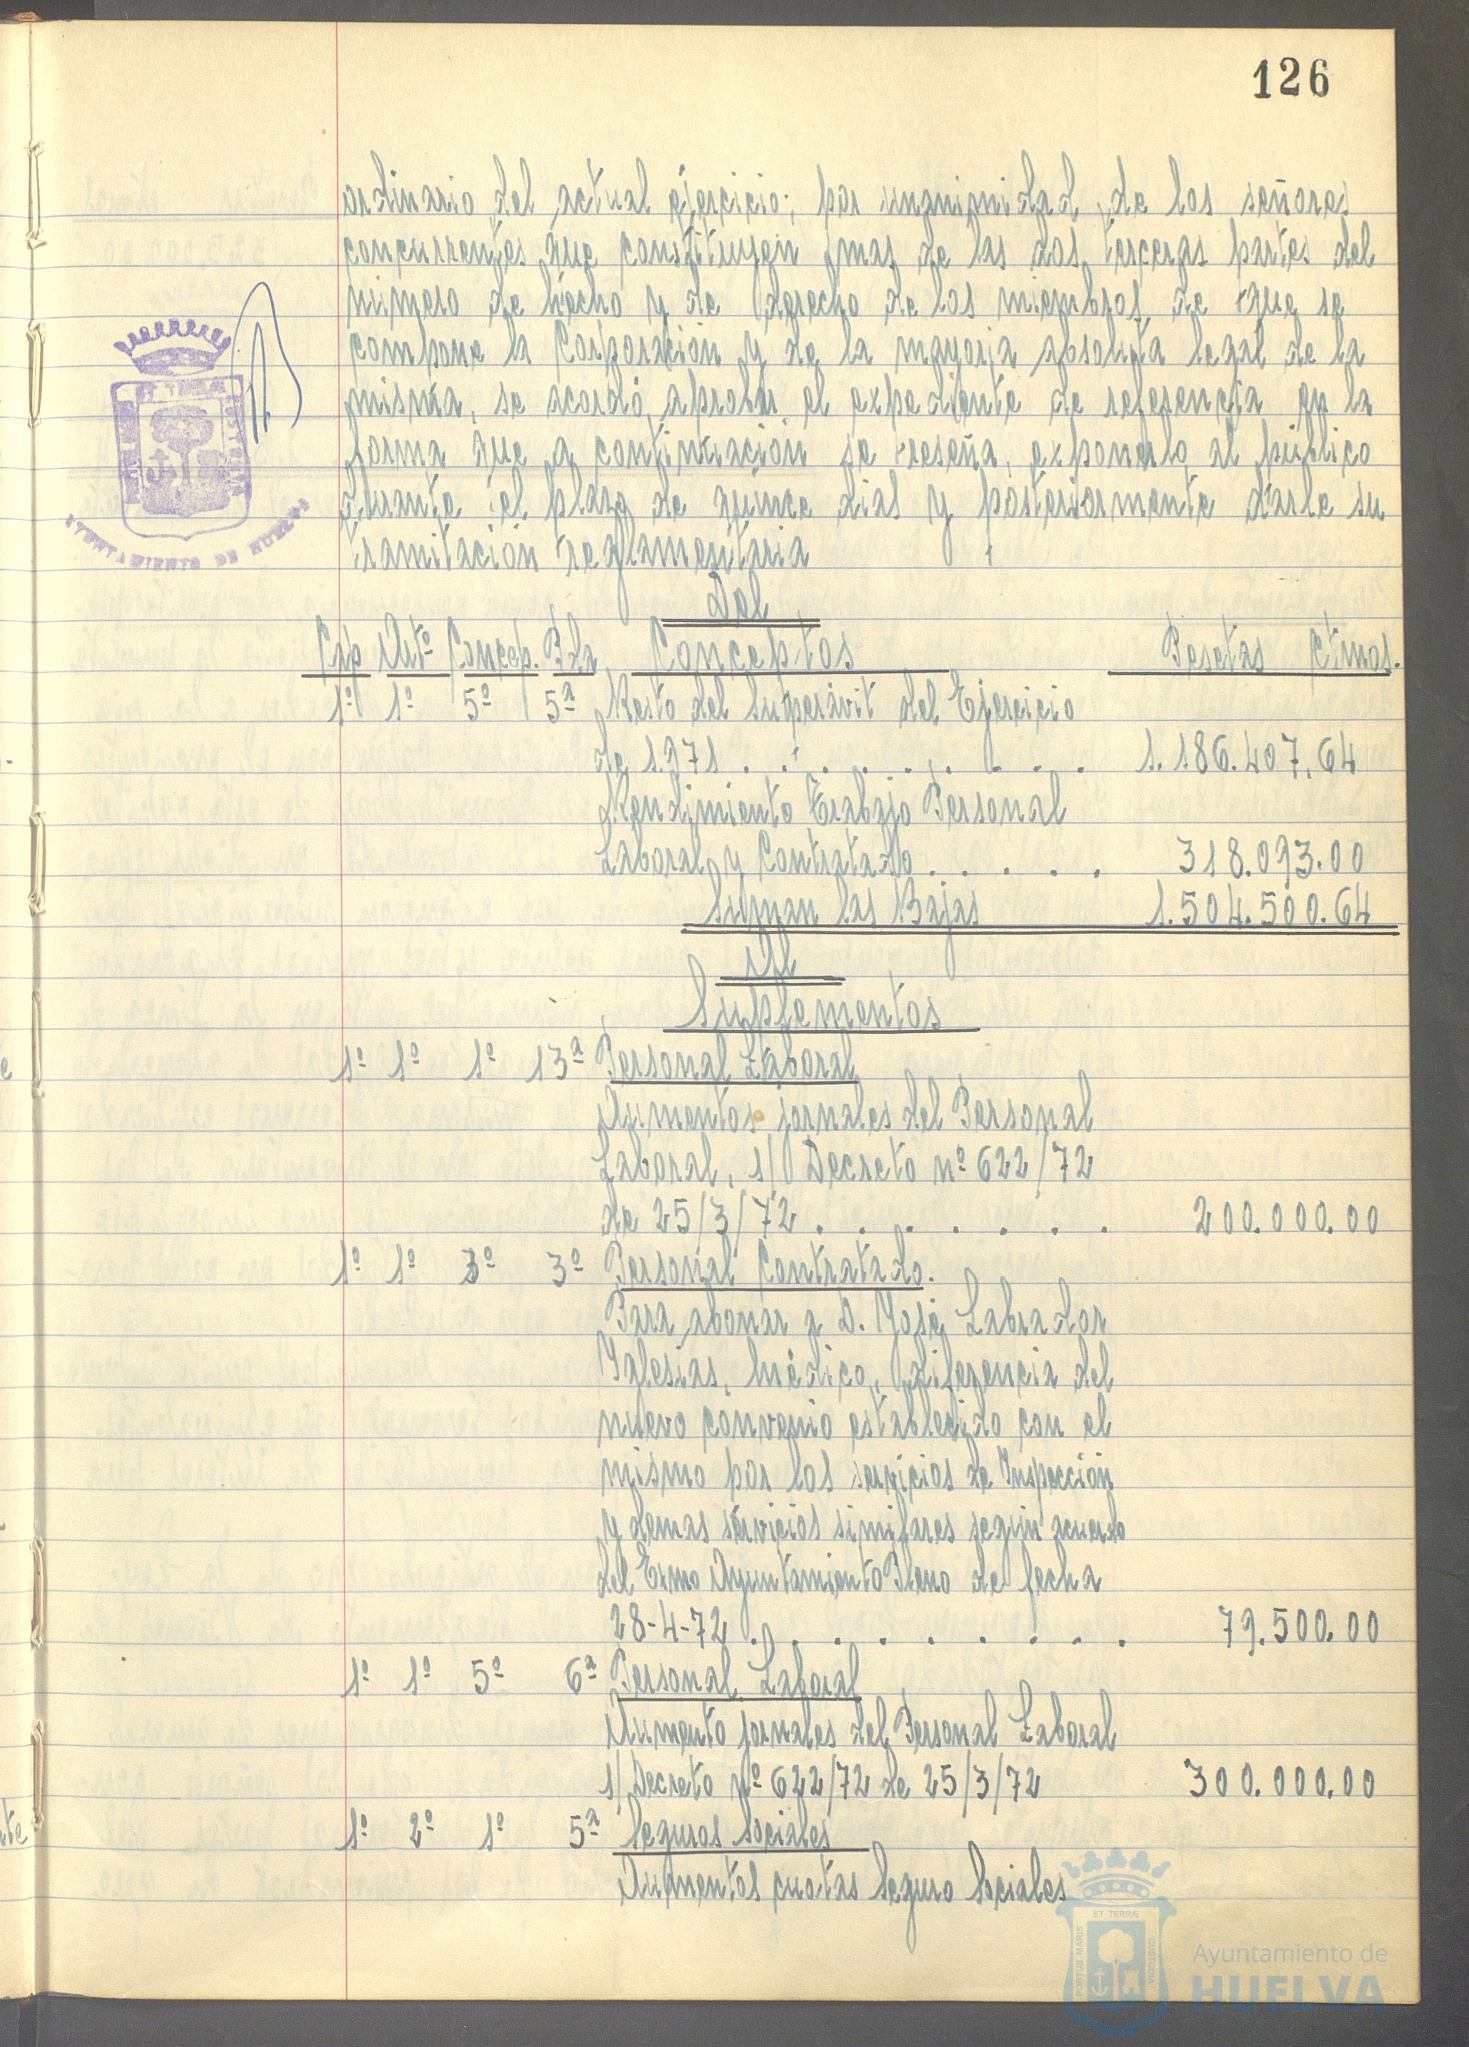 126
ordinario del actual ejercicio; por unanimidad de los señores
concurrentes que constituyen mas de las dos terceras partes del
número de hecho y de derecho de los miembros de que se
compone la Corporación y de la mayoria absoluta legal de la
misma, se acordó aprobar el expediente de referencia en la
forma que a continuación se reseña, exponerlo al público
durante el plazo de quince dias y posteriormente darle su
tramitación reglamentaria
Del
Cap Artº Concep. Pda Conceptos Pesetas Ctmos.
1º 1º 5º 5ª Resto del Superávit del Ejercicio
de 1.971 . . . . . . . . . 1.186.407,64
Rendimiento Trabajo Personal
Laboral y Contratado . . . . . 318.093.00
Suman las Bajas 1.504.500.64
Al
Suplementos
1º 1º 1º 13ª Personal Laboral
Aumentos jornales del Personal
Laboral, s/ Decreto nº 622/72
de 25/3/72 . . . . . . . 200.000.00
1º 1º 3º 3º Personal Contratado.
Para abonar a D. José Labrador
Iglesias, Médico, diferencia del
nuevo convenio establecido con el
mismo por los servicios de Inspección
y demas servicios similares según acuerdo
del Exmo Ayuntamiento Pleno de fecha
28-4-72 . . . . . . . . . 79.500.00
1º 1º 5º 6ª Personal Laboral
Aumento jornales del Personal Laboral
s/ Decreto nº 622/72 de 25/3/72 300.000.00
1º 2º 1º 5ª Seguros Sociales
Aumentos cuotas Seguro Sociales
AYUNTAMIENTO DE HUELVA
PORTUS MARIS
ET TERRÆ
CUSTODIA
Ayuntamiento de
HUELVA